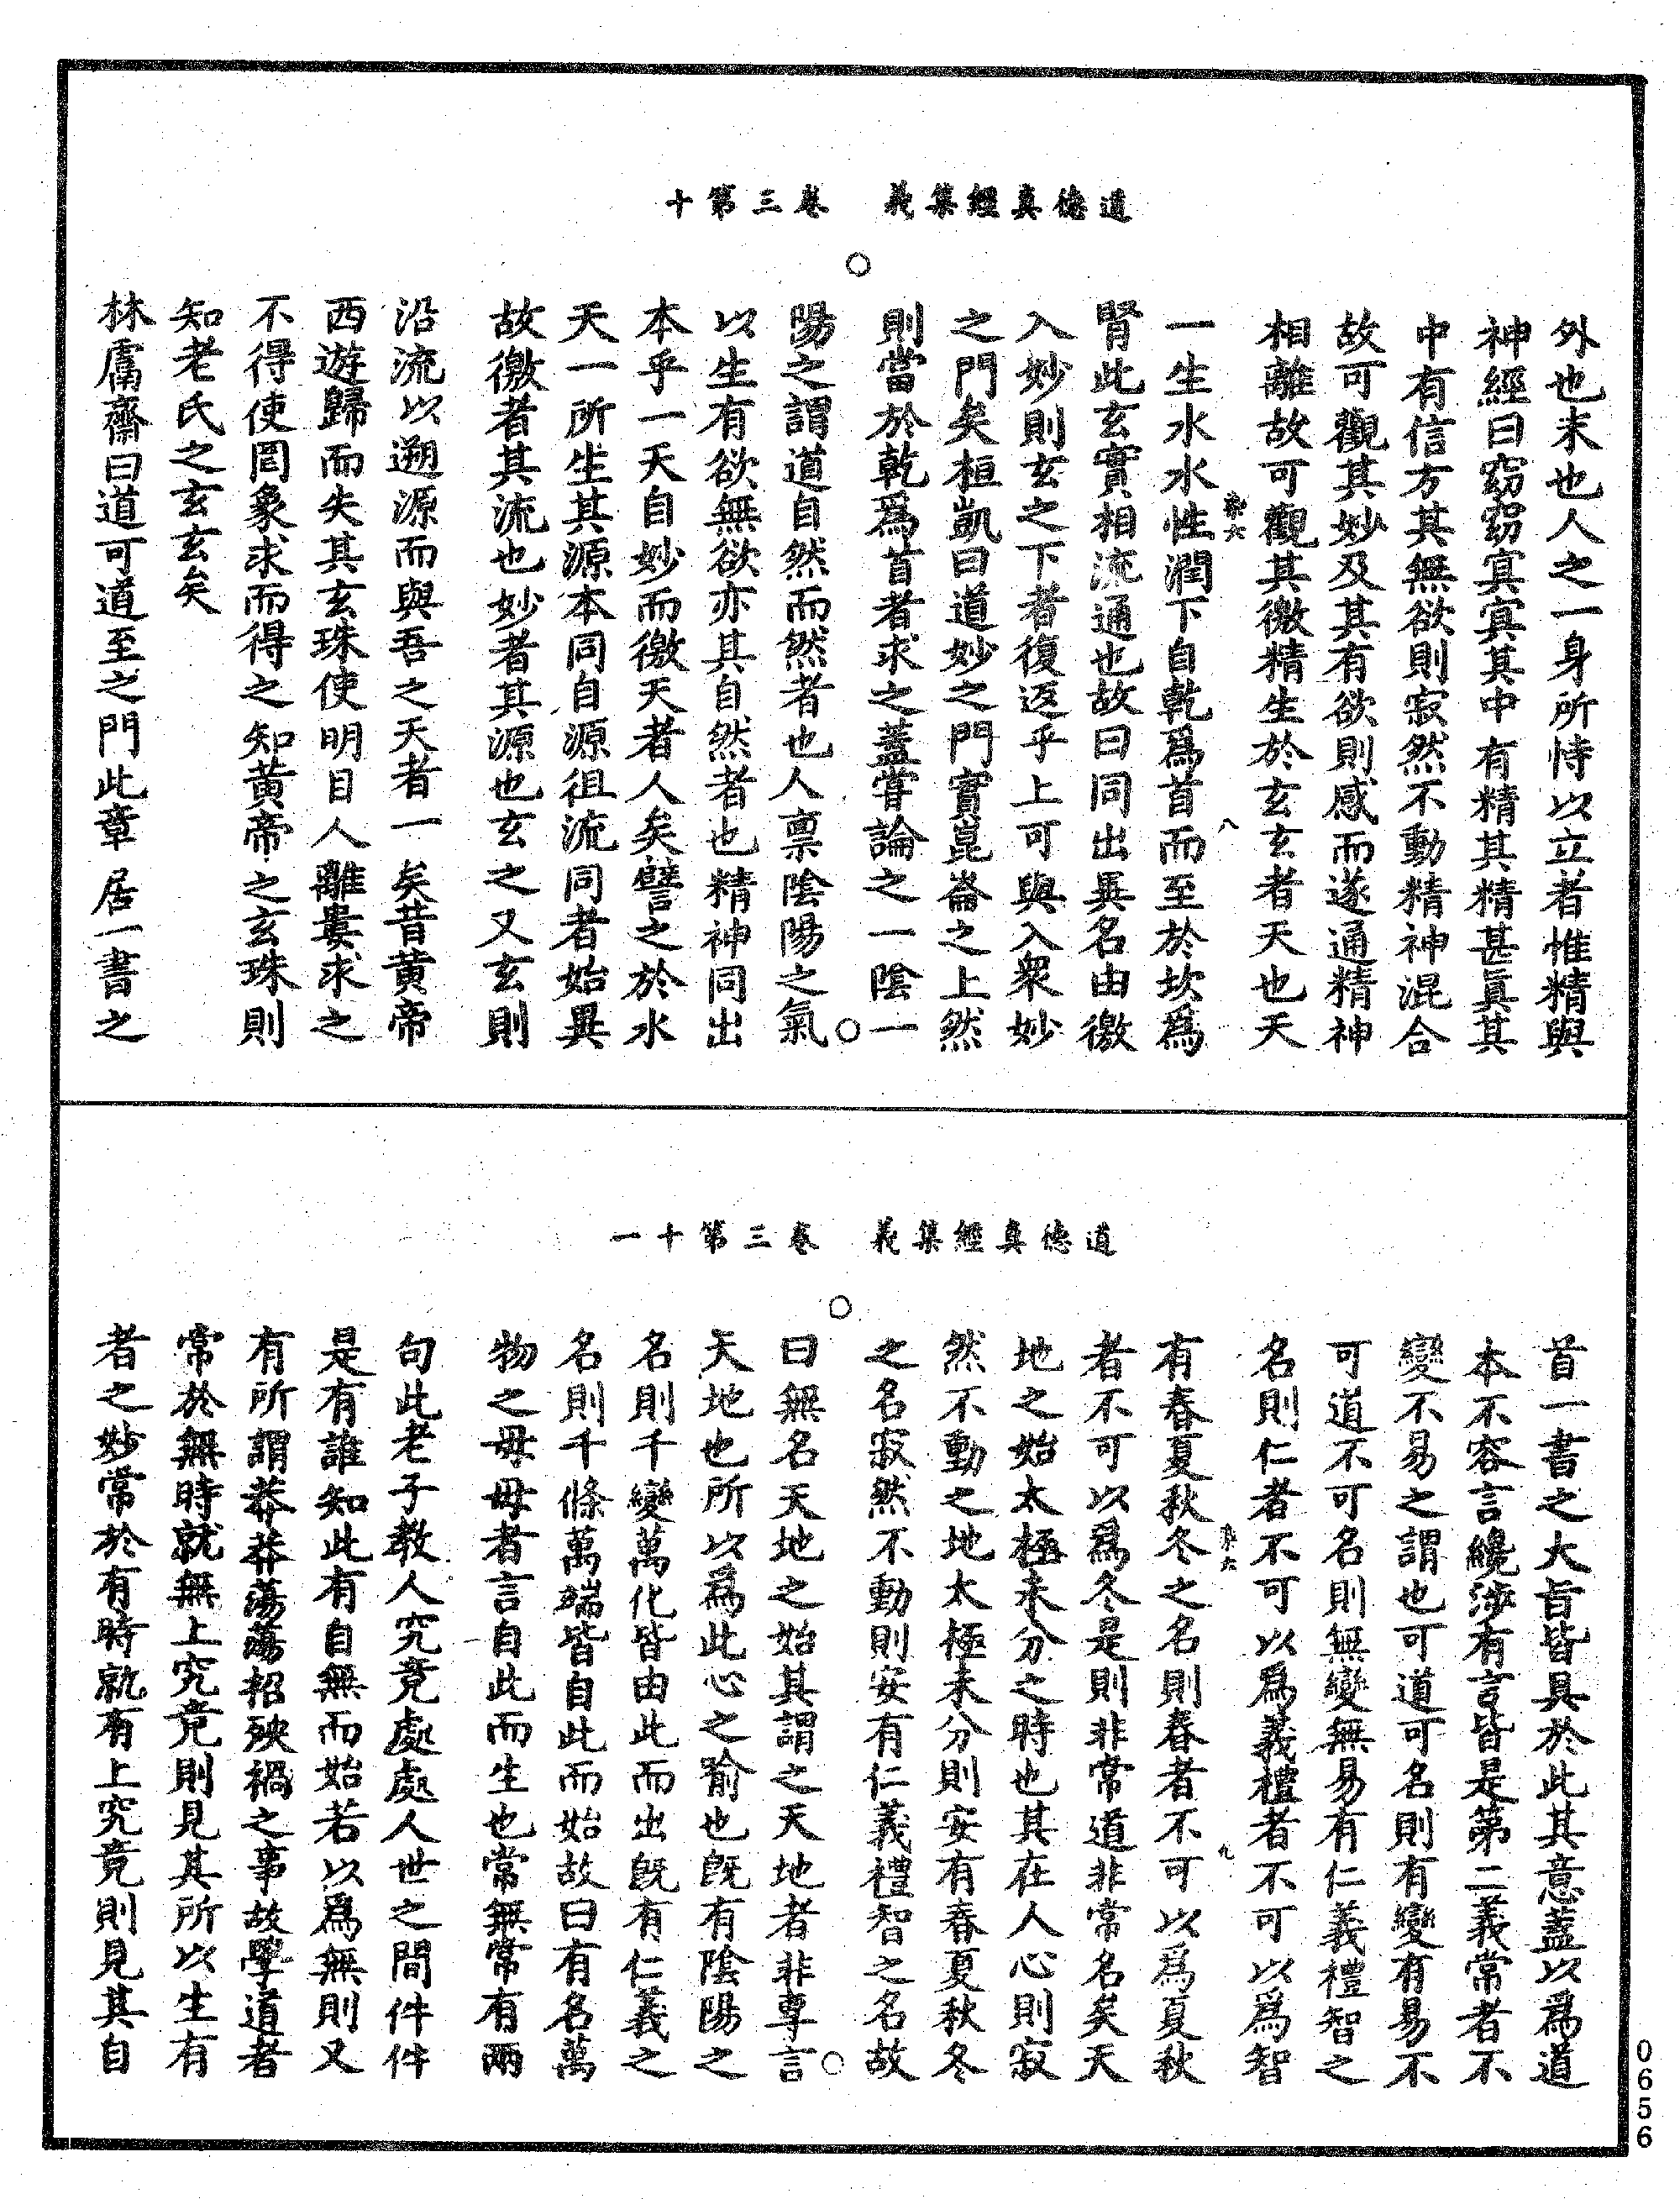 道德真經集義　卷三第十
外也末也人之一身所恃以立者惟精與
神經曰窈窈冥冥其中有精其精甚眞其
中有信方其無欲則寂然不動精神混合
故可觀其妙及其有欲則感而遂通精神
相離故可觀其徼精生於玄玄者天也天
八
一生水水性潤下自乾爲首而至於坎爲
腎此玄實相流通也故曰同出異名由徼
入妙則玄之下者復返乎上可與入衆妙
之門矣桓凱曰道妙之門實崑崙之上然
則當於乾爲首者求之蓋甞論之一陰一
陽之謂道自然而然者也人禀陰陽之氣
以生有欲無欲亦其自然者也精神同出
本乎一天自妙而徼天者人矣譬之於水
天一所生其源本同自源徂流同者始異
故徼者其流也妙者其源也玄之又玄則
沿流以遡源而與吾之天者一矣昔黄帝
西遊歸而失其玄珠使明目人離婁求之
不得使罔象求而得之知黄帝之玄珠則
知老氏之玄玄矣
林鬳齋曰道可道至之門此章居一書之
道德真經集義　卷三第十一
首一書之大旨皆具於此其意蓋以爲道
本不容言纔涉有言皆是第二義常者不
變不易之謂也可道可名則有變有易不
可道不可名則無變無易有仁義禮智之
名則仁者不可以爲義禮者不可以爲智
九
有春夏秋冬之名則春者不可以爲夏秋
者不可以爲冬是則非常道非常名矣天
地之始太極未分之時也其在人心則寂
然不動之地太極未分則安有春夏秋冬
之名寂然不動則安有仁義禮智之名故
曰無名天地之始其謂之天地者非專言
天地也所以爲此心之喻也旣有陰陽之
名則千變萬化皆由此而出旣有仁義之
名則千條萬端皆自此而始故曰有名萬
物之母母者言自此而生也常無常有兩
句此老子教人究竟處處人世之間件件
是有誰知此有自無而始若以爲無則又
有所謂莽莽蕩蕩招殃禍之事故學道者
常於無時就無上究竟則見其所以生有
者之妙常於有時就有上究竟則見其自
0656